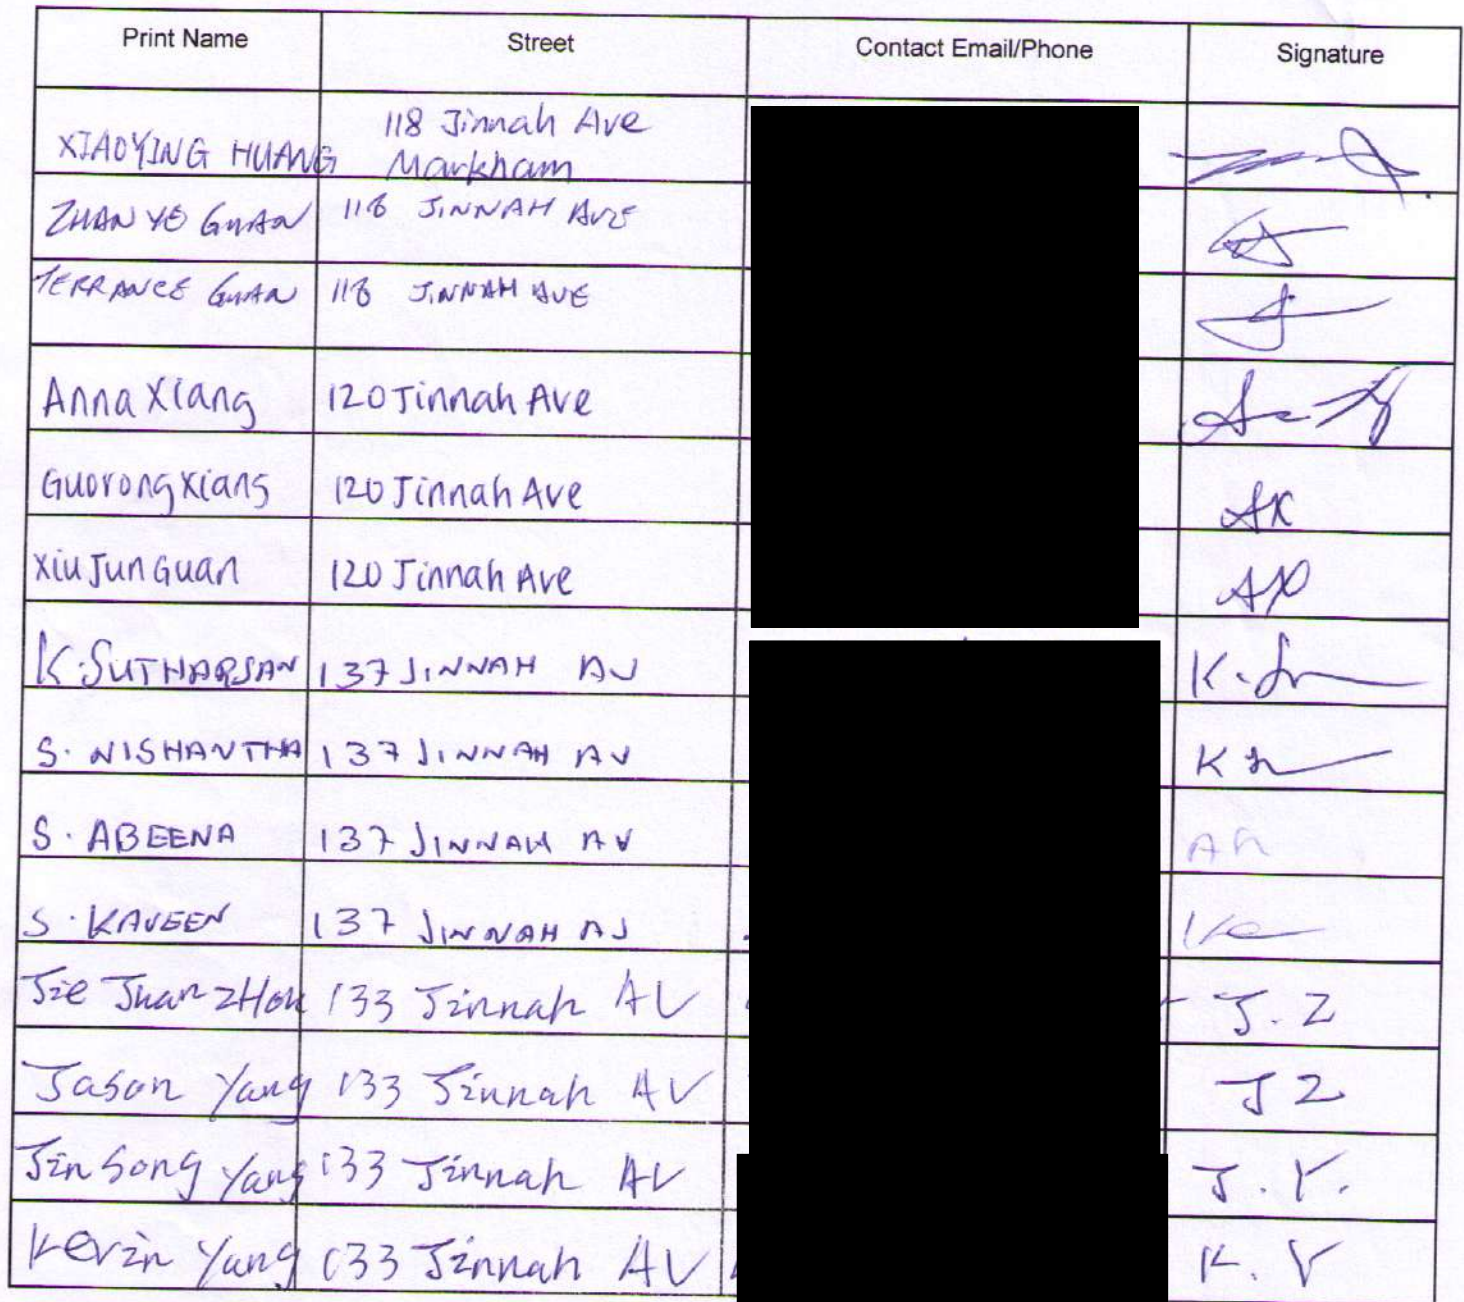 Print Name Street Contact Email/Phone Signature
118 Jinnah Ave
XIAOYING HUANG Markham
ZHAN YE GUAN 118 JINNAH AVE
TERRANCE GUAN 118 JINNAH AVE
Anna Xiang 120 Jinnah Ave
Guorong Xiang 120 Jinnah Ave AX
Xiu Jun Guan 120 Jinnah Ave
K. SUTHARSAN 137 JINNAH AV
S. NISHANTHA 137 JINNAH AV
S. ABEENA 137 JINNAH AV
S. KAVEEN 137 JINNAH AV
Jie Juan ZHou 133 Jinnah AV J. Z
Jason Yang 133 Jinnah AV J Z
Jin Song Yang 133 Jinnah AV J. Y.
Kevin Yang 133 Jinnah AV K. Y